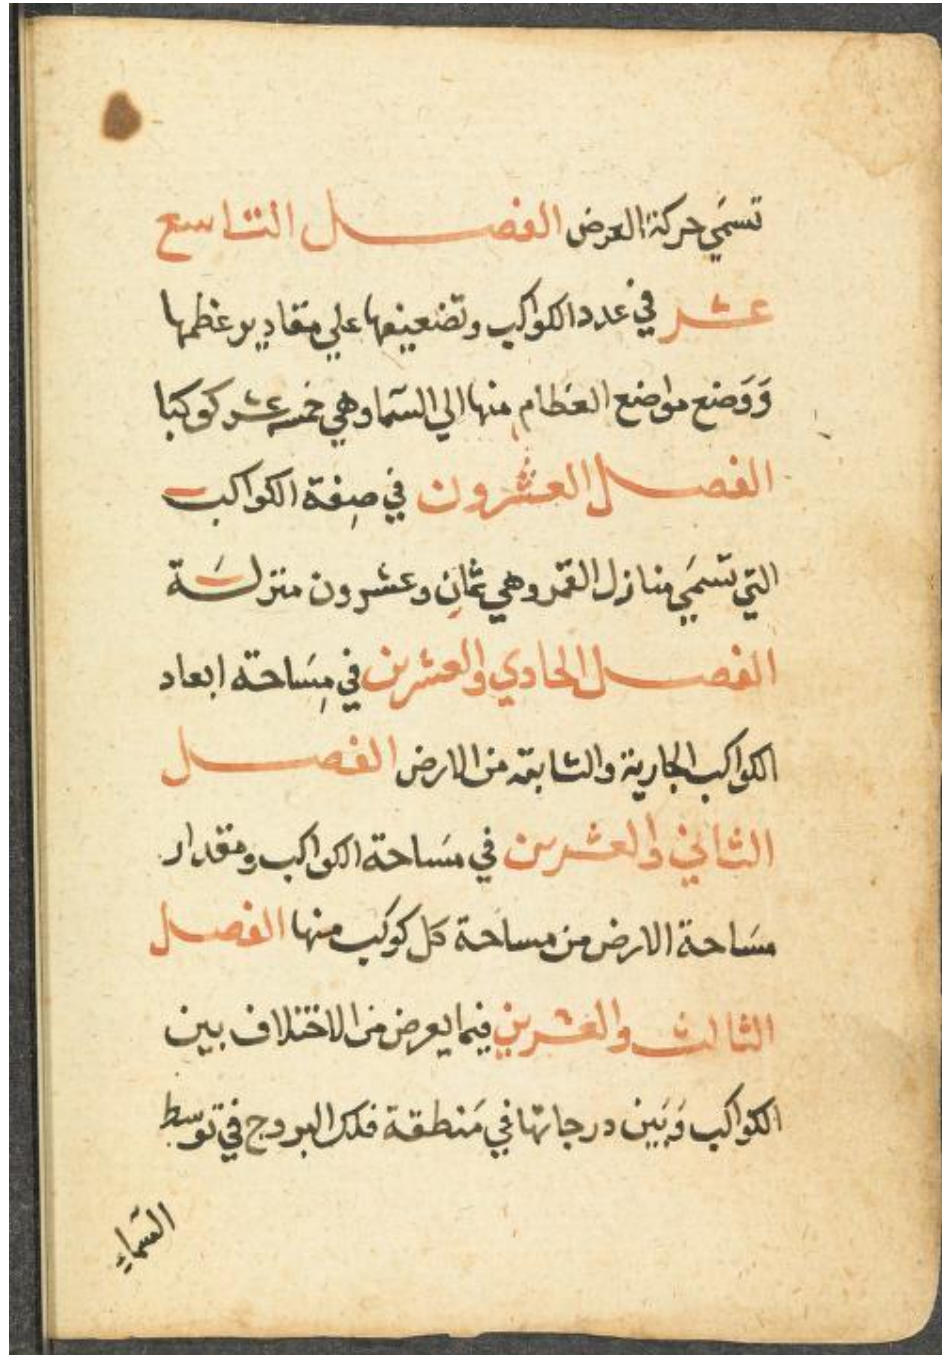 تسمَي حركة العرض الفصل التاسع
عشر في عدد الكواكب وتضعيفها علي مقادير عظمها
وَوَضع مواضع العظام منها الي السّما وهي خمسه عشر كوكبا
الفصل العشرون في صِفة الكواكب
التي تسمَي منازل القمر وهي ثمانِ وعشرون منزلَة
الفصل الحادي والعشرين في مِسَاحته ابعاد
الكواكب الجارية والثابته من الارض الفصل
الثاني والعشرين في مسَاحة الكواكب ومقدار
مسَاحة الارض من مساحة كل كوكب منها الفصل
الثالث والعشرين فيما يعرض من الاختلاف بين
الكواكب وَبَين درجاتها في مَنطقة فلك البروج في توسط
السّماء